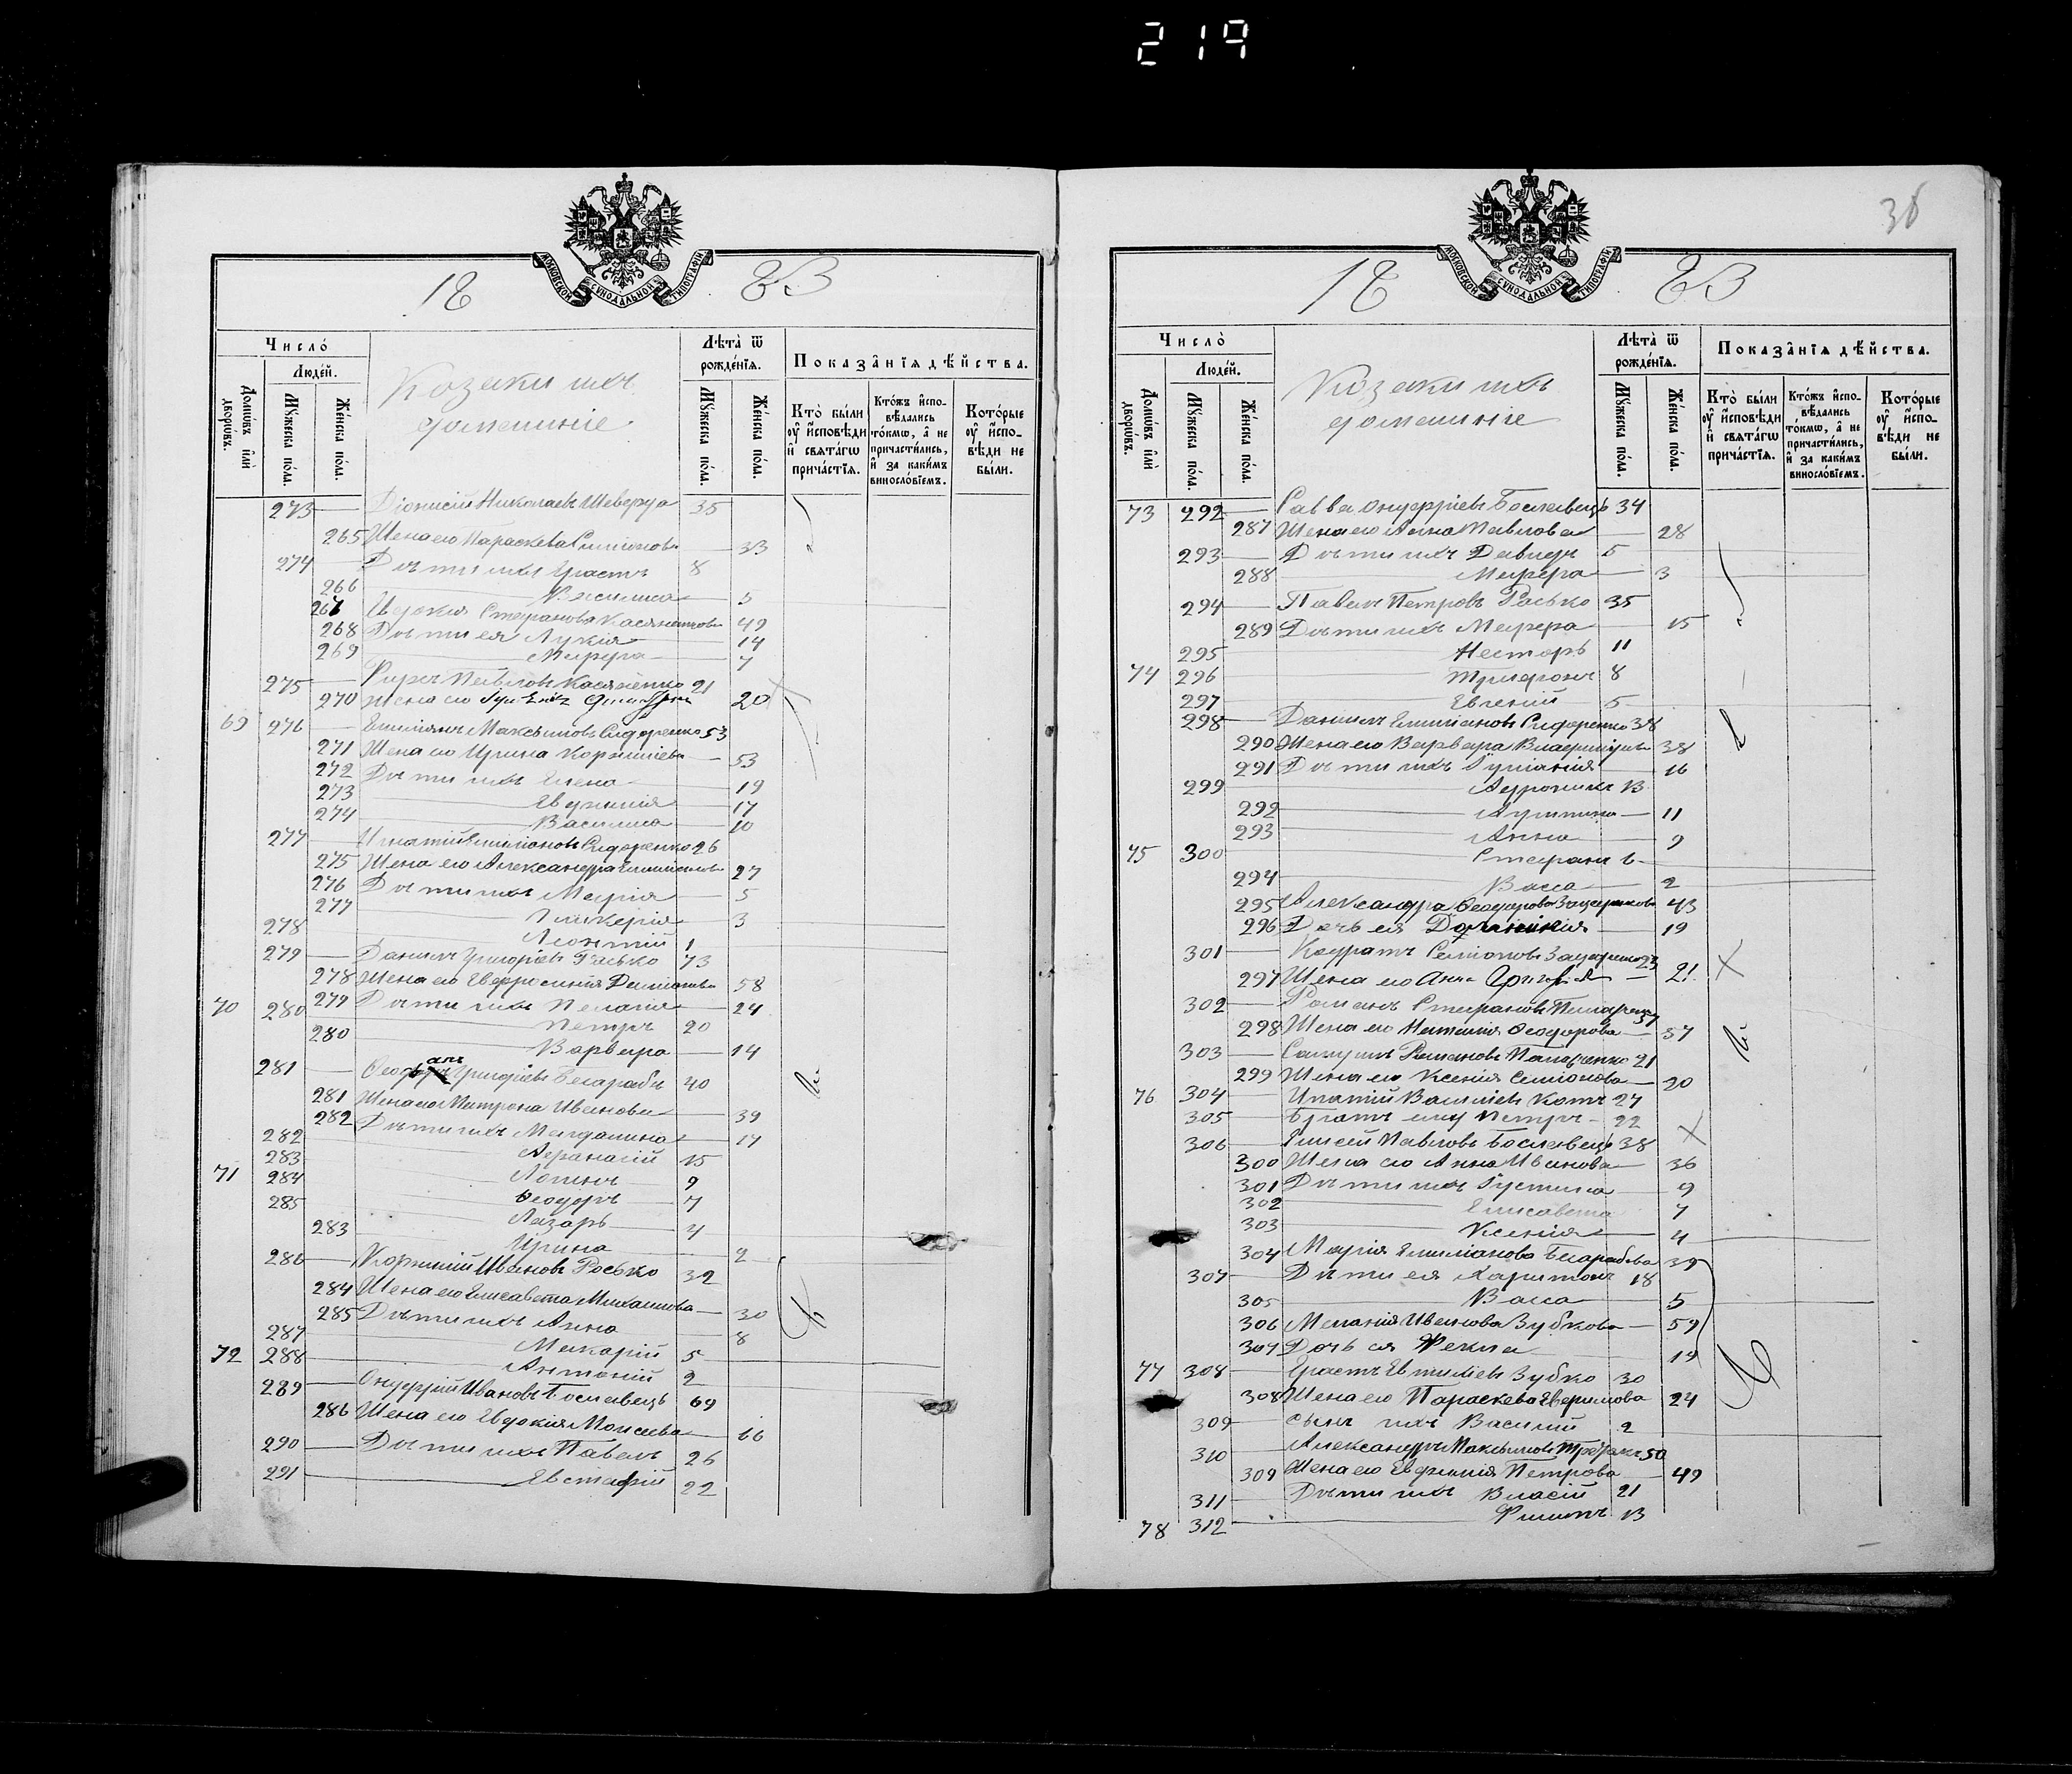 219
38
МОСКОВСКОЙ СѴНОДАЛЬНОЙ ТИПОГРАФІИ
18 83
Число̀
Людей.
Домѡвъ илѝ дворѡвъ.
Мꙋжеска пола.
Женска пола.
Козаки ихъ
домашніе
Лѣта̀ ѿ рожденія.
Мꙋжеска пола.
Женска пола.
Показанія дѣйства.
Кто̀ были оу исповѣди и свѧтагѡ причастія.
Ктожъ исповѣдались токмѡ, а не причастились, и за какимъ винословіемъ.
Которые оу исповѣди не были.
273 Діонисій Николаевъ Шеверда 35
265 Жена его Параскева Симіонова 33
274 Дѣти ихъ Ерастъ 8
266 Василиса 5
267 Евдокія Стефанова 49
268 Дѣти ея Лукія 14
269 Марѳа 7
275 Фирсъ Павловъ 21
270 Жена его 20
69 276 Емиліянъ Максимовъ Сидоренко 53
271 Жена его Ирина Корниліева 53
272 Дѣти ихъ Елена 19
273 Евѳимія 17
274 Василиса 10
277 Игнатій Емиліановъ Сидоренко 26
275 Жена его Александра 27
276 Дѣти ихъ Марія 5
277 Гликерія 3
278 Леонтій 1
279 Даніилъ Григоріевъ Расько 73
278 Жена его Евфросинія 58
70 279 Дѣти ихъ Пелагія 24
280 Петръ 20
280 Варвара 14
281 Григоріевъ Бесарабъ 40
281 Жена его Матрона Иванова 39
282 Дѣти ихъ Магдалина 17
282 Аѳанасій 15
283 Логинъ 9
71 284 Ѳеодоръ 7
285 Лазарь 4
283 Ирина 2
286 Корнилій Ивановъ Росько 32
284 Жена его Елисавета Михаилова 30
285 Дѣти ихъ Анна 8
287 Макарій 5
72 288 Антоній 2
289 Онуфрій Ивановъ Бославецъ 69
286 Жена его Евдокія Моисеева 66
290 Дѣти ихъ Павелъ 26
291 Евстафій 22
МОСКОВСКОЙ СѴНОДАЛЬНОЙ ТИПОГРАФІИ
18 83
Число̀
Людей.
Домѡвъ илѝ дворѡвъ.
Мꙋжеска пола.
Женска пола.
Козаки ихъ
домашніе
Лѣта̀ ѿ рожденія.
Мꙋжеска пола.
Женска пола.
Показанія дѣйства.
Кто̀ были оу исповѣди и свѧтагѡ причастія.
Ктожъ исповѣдались токмѡ, а не причастились, и за какимъ винословіемъ.
Которые оу исповѣди не были.
73 292 Савва Онуфріевъ Бославецъ 34
287 Жена его Анна Павлова 28
293 Дѣти ихъ Давидъ 5
288 Марѳа 3
294 Павелъ Петровъ Расько 35
289 Дѣти ихъ Марѳа 15
295 Несторъ 11
74 296 Трифонъ 8
297 Евгеній 5
298 Даніилъ Емиліановъ Сидоренко 38
290 Жена его Варвара 38
291 Дѣти ихъ 16
299 Андроникъ 13
292 11
293 Анна 9
75 300 Стефанъ 6
294 Васса 2
295 Александра Ѳеодорова 43
296 Дочь ея 19
301 Кодратъ Семіоновъ 23
297 Жена его Анна 21
302 Романъ Стефановъ 57
298 Жена его Наталія Ѳеодорова 57
303 Самуилъ Романовъ 21
299 Жена его Ксенія Семіонова 20
76 304 Ипатій Василіевъ Котъ 27
305 Братъ ему Петръ 22
306 Елисей Павловъ Бославецъ 38
300 Жена его Анна Иванова 36
301 Дѣти ихъ Іустина 9
302 Елисавета 7
303 Ксенія 4
304 Марія Емиліанова Бесарабова 39
307 Дѣти ея Харитонъ 18
305 Васса 5
306 Меланія Иванова Зубкова 59
307 Дочь ея Ѳекла 19
77 308 Ерастъ Евтиміевъ Зубко 30
308 Жена его Параскева 24
309 Сынъ ихъ Василій 2
310 Александръ Максимовъ 50
309 Жена его Евѳимія Петрова 49
311 Дѣти ихъ Власій 21
78 312 Филипъ 13